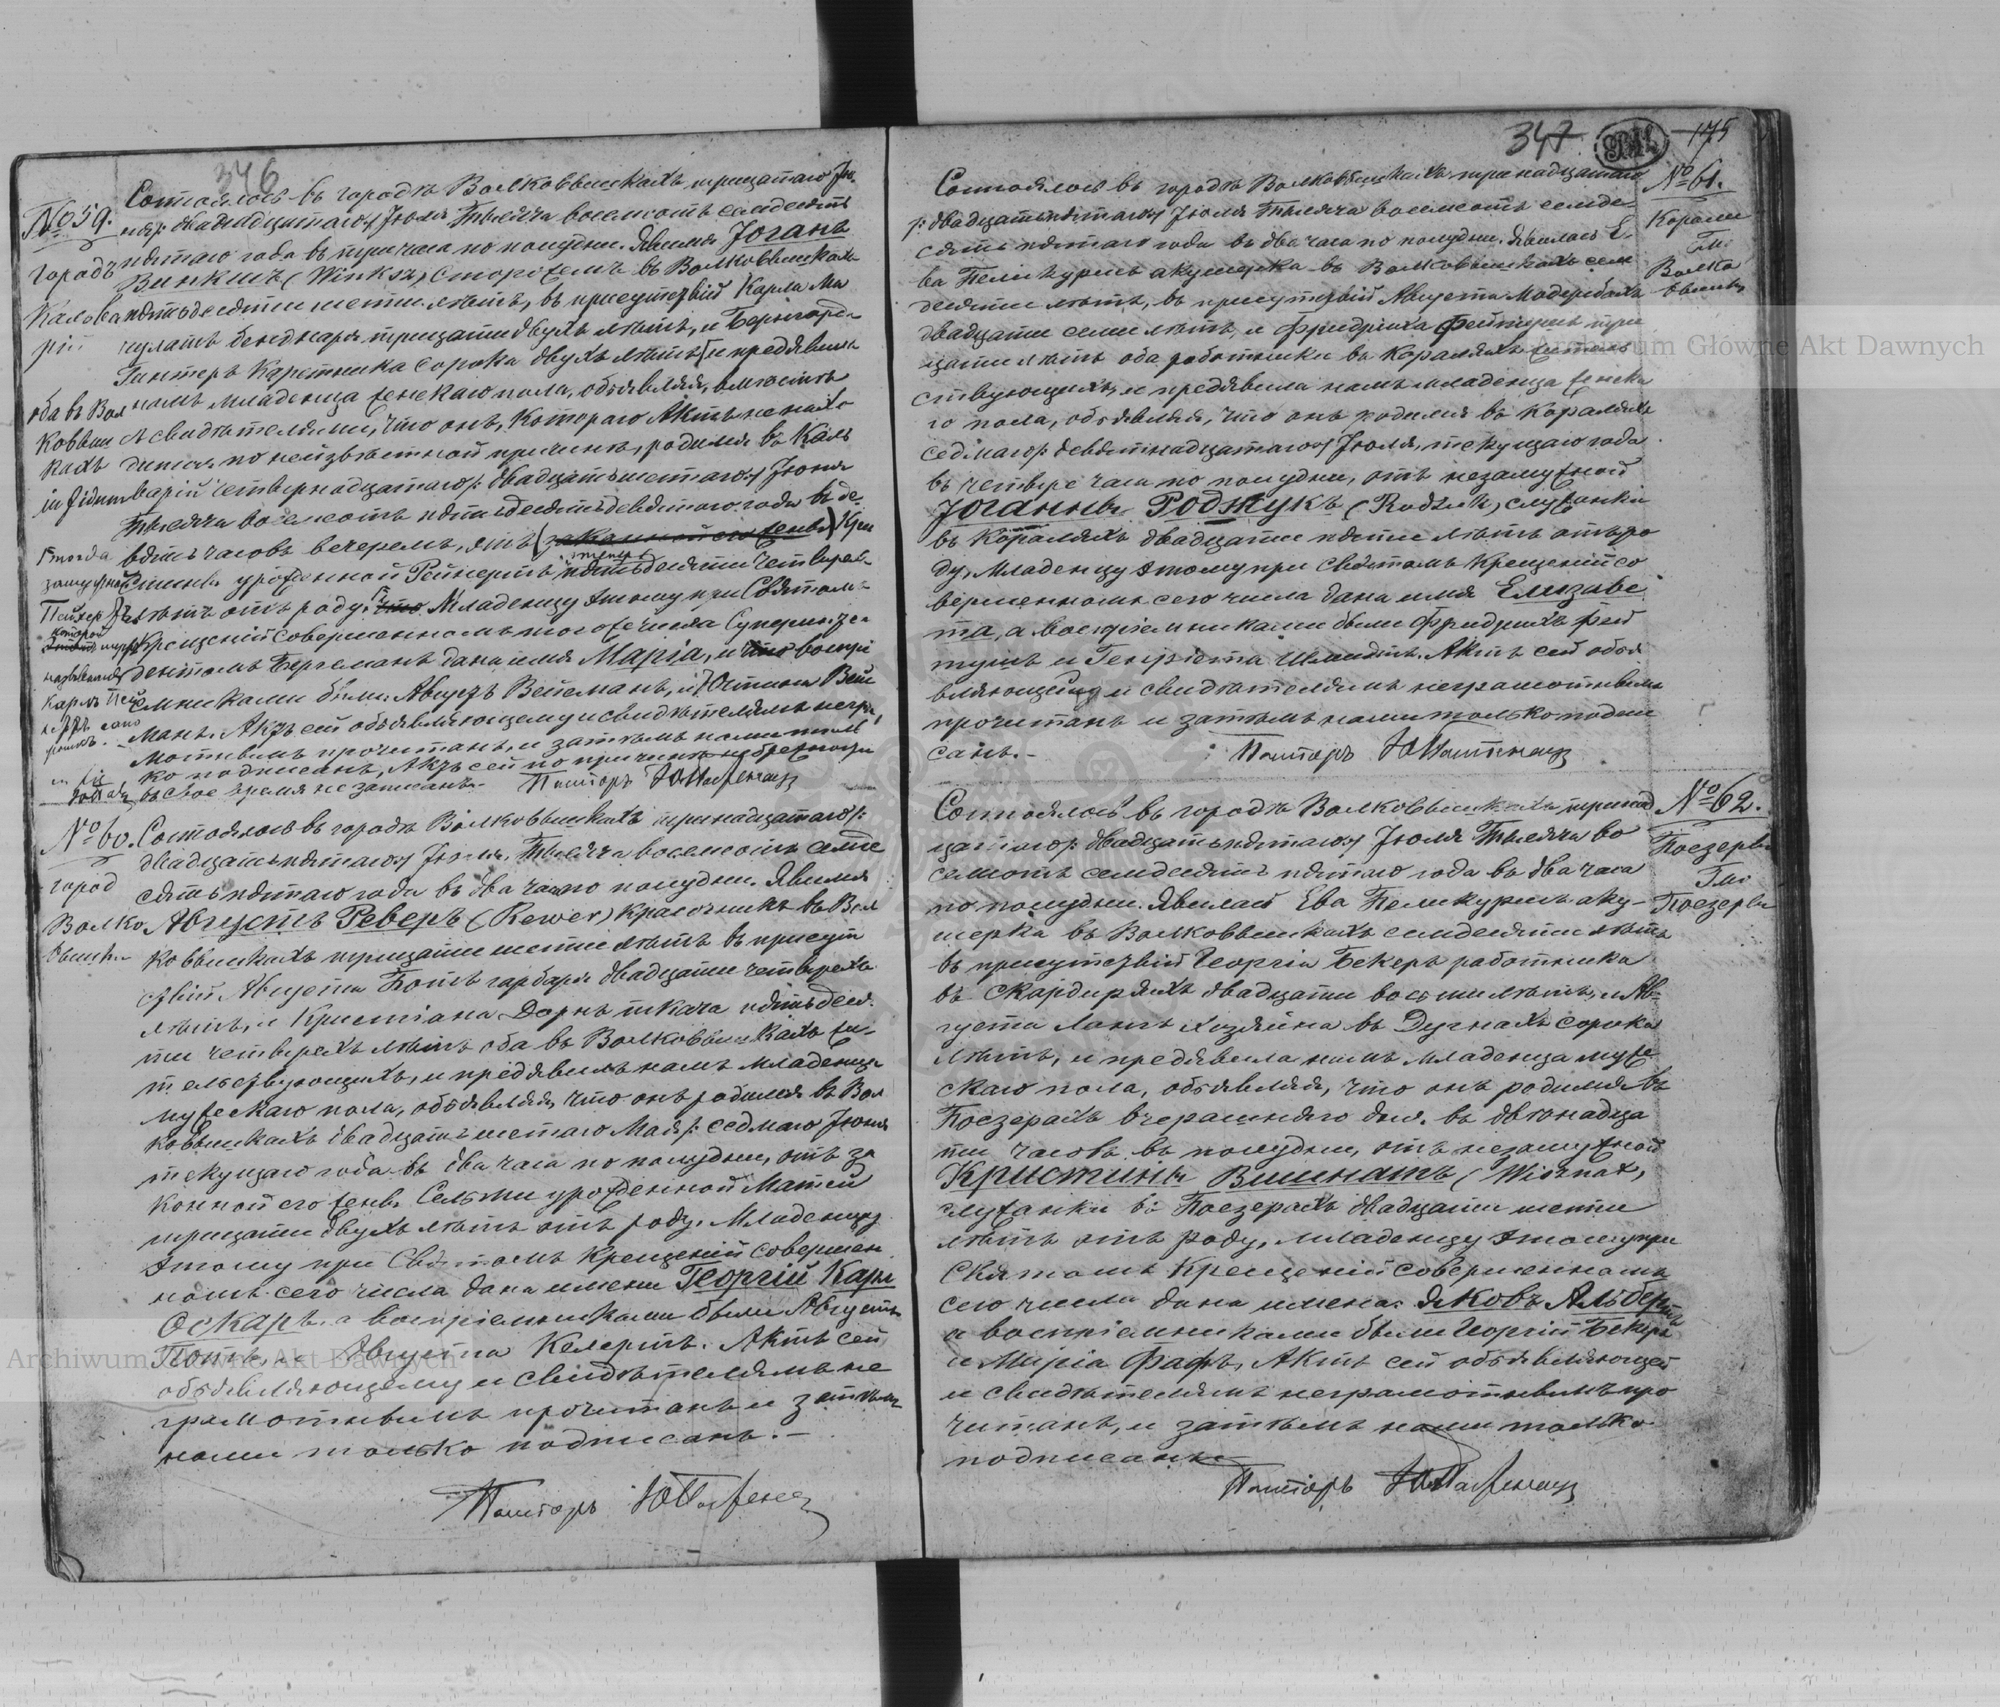 346
№ 59.
городъ
Кальва
рiи
оба въ Вол
ковыш
кахъ
Состоялось въ городѣ Волковышкахъ тринадцатаго /:
двадцать пятаго/ Iюля Тысяча восемсотъ семдесятъ
пятаго года въ три часа по полудни. Явился Iоганъ
Винксъ (Winksz) сторожемъ въ Волковышкахъ
пятьдесяти шести лѣтъ, въ присутствiи Карла
бенднаря тридцати двухъ лѣтъ, и
Гинтеръ Каретника сорока двухъ лѣтъ и предявилъ
намъ младенца женскаго пола, объявляя, вмѣстѣ
съ свидѣтелями, что онъ, котораго Актъ не
по неизвѣстной причинѣ, родился въ Каль
варiи четырнадцатаго /: двадцать шестаго/ Iюня
Тысяча восемсотъ пятьдесятъ девятаго года въ де
вять часовъ вечеромъ, отъ (законной его жены)
урожденной Рейнертъ теперь пятьдесяти четырехъ
лѣтъ отъ роду. Младенцу этому при Святомъ
Крещенiи совершенномъ того числа
дентомъ Бергеманъ дана имя Марiя, и воспрi
емниками были: Августъ Вейеманъ, и Вей
манъ. Актъ сей объявляющему и свидѣтелямъ негра
мотнымъ прочитанъ, и затѣмъ нами толь
ко подписанъ, Актъ сей по причинѣ небрежности
въ свое время не записанъ.
Пасторъ
№ 60.
город
Волко
вышки
Состоялось въ городѣ Волковышкахъ тринадцатаго /:
двадцать пятаго/ Iюля Тысяча восемсотъ семде
сятъ пятаго года въ два часа по полудни. Явился
Августъ Реверъ (Rewer) красочникъ въ Вол
ковышкахъ тридцати шести лѣтъ въ присут
ствiи Августа Потъ гарбаря двадцати четырехъ
лѣтъ, и Кристiана Дорнъ ткача пятьдеся
ти четырехъ лѣтъ оба въ Волковышкахъ жи
тельствующихъ, и предявилъ намъ младенца
мужескаго пола, объявляя, что онъ родился въ Вол
ковышкахъ двадцать шестаго Мая /: седмаго Iюня
текущаго года въ два часа по полудни, отъ за
конной его жены Сельмы урожденной Матей
тридцати двухъ лѣтъ отъ роду. Младенцу
этому при Святомъ Крещенiи совершен
номъ сего числа дана имени Георгiй Карл
Оскаръ, а воспрiемниками были Августъ
Потъ, и Августа Келертъ. Актъ сей
объявляющему и свидѣтелямъ не
грамотнымъ прочитанъ и затѣмъ
нами только подписанъ.
Пасторъ
347
175
№ 61.
Волко
вышки
Состоялось въ городѣ Волковышкахъ тринадцатаго
/: двадцать пятаго/ Iюля Тысяча восемсотъ семде
сятъ пятаго года въ два часа по полудни. Явилась Е
ва Пеликурисъ акушерка въ Волковышкахъ сем
десяти лѣтъ, въ присутствiи Августа
двадцати семи лѣтъ, и Фридриха три
дцати лѣтъ оба работники въ Каралахъ житель
ствующихъ, и предявила намъ младенца женска
го пола, объявляя, что онъ родился въ Каралахъ
седмаго /: девятнадцатаго/ Iюля, текущаго года
въ четыре часа по полудни, отъ незамужной
Iоганны Роджукъ служанки
въ Каралахъ двадцати пяти лѣтъ отъ ро
ду, Младенцу этому при Святомъ Крещенiи со
вершенномъ сего числа дана имя Елизаве
та, а воспрiемниками были Фридрихъ
и Генрiета Шмидтъ. Актъ сей объя
вляющей и свидѣтелямъ неграмотнымъ
прочитанъ и затѣмъ нами только подпи
санъ.
Пасторъ
№ 62.
Поезеры
Поезеры
Состоялось въ городѣ Волковышкахъ тринад
цатаго /: двадцать пятаго/ Iюля Тысяча во
семсотъ семдесятъ пятаго года въ два часа
по полудни. Явилась Ева Пеликурисъ аку
шерка въ Волковышкахъ семдесяти лѣтъ
въ присутствiи Георгiя Бекеръ работника
въ Скардупяхъ двадцати восьми лѣтъ, и Ав
густа Лангъ хозяина въ сорока
лѣтъ, и предявила намъ младенца муже
скаго пола, объявляя, что онъ родился въ
Поезерахъ вчерашняго дня. въ двѣнадца
ти часовъ въ полудни, отъ незамужной
Кристины Вишнатъ (Wisznat)
служанки въ Поезерахъ двадцати шести
лѣтъ отъ роду, младенцу этому при
Святомъ Крещенiи совершенномъ
сего числа дана имена: Яковъ Альбертъ
а воспрiемниками были Георгiй Бекеръ
и Марiа Фафъ, Актъ сей объявляющей
и свидѣтелямъ неграмотнымъ про
читанъ, и затѣмъ нами только
подписанъ
Пасторъ
Archiwum Główne Akt Dawnych
Archiwum Główne Akt Dawnych